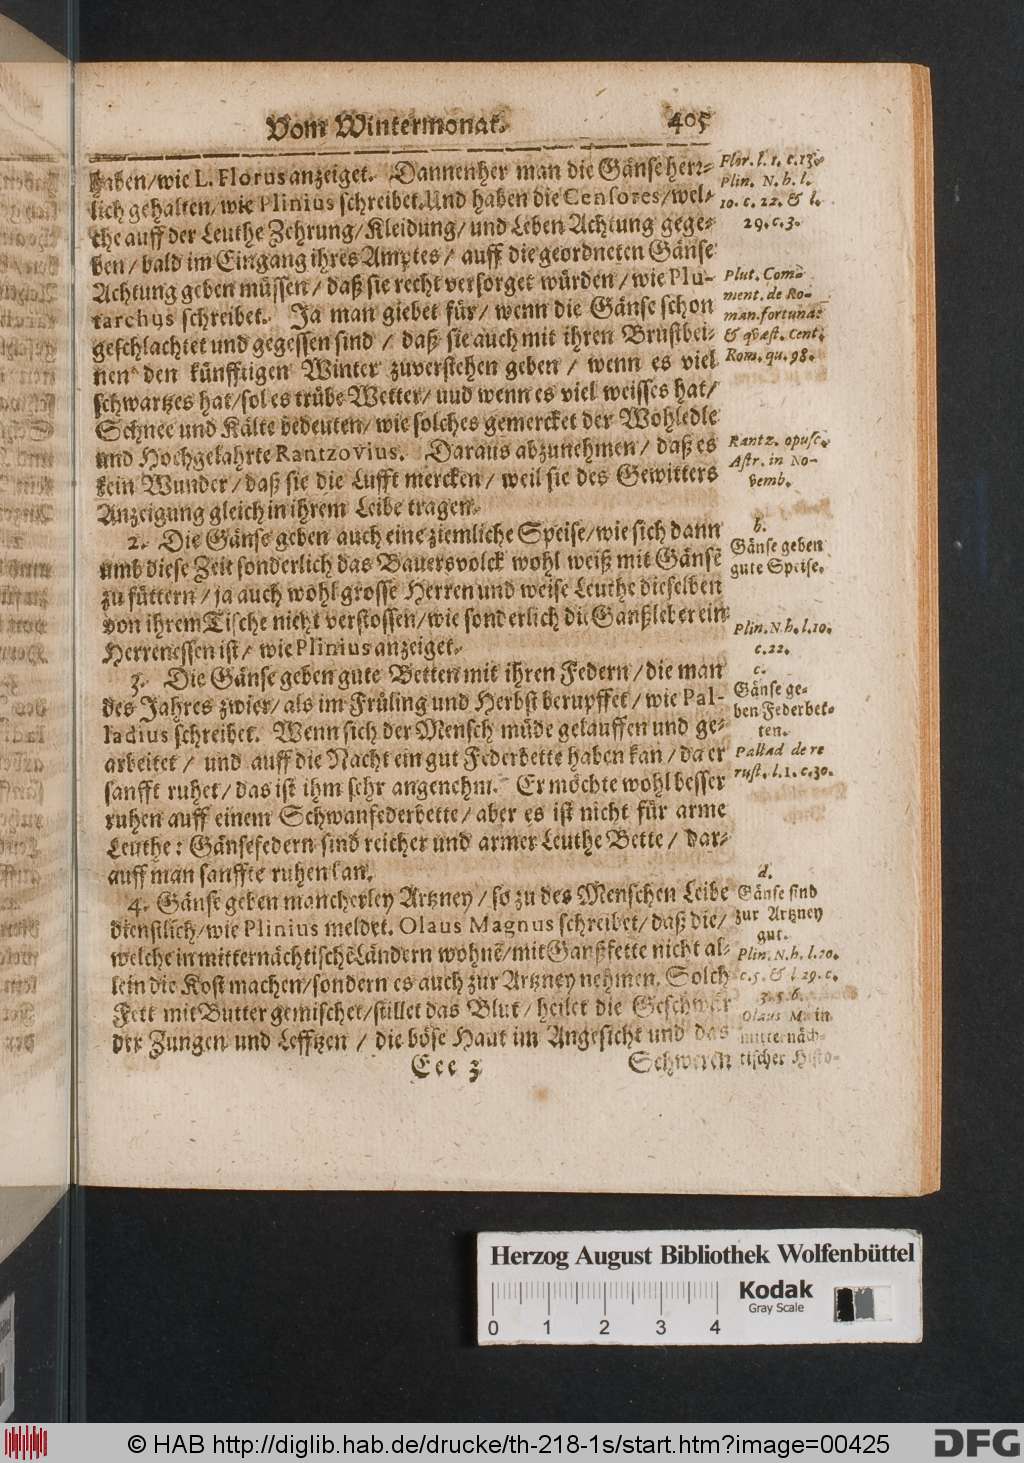 Vom Wintermonat. 405
haben/wie L. Florus anzeiget. Dannenher man die Gänse herr-
lich gehalten/wie Plinius schreibet. Und haben die Censores/wel-
che auff der Leuthe Zehrung/Kleidung/und Leben Achtung gege-
ben/bald im Eingang ihres Amptes/ auff die geordneten Gänse
Achtung geben müssen/daß sie recht versorget würden/wie Plu-
tarchus schreibet. Ja man giebet für/ wenn die Gänse schon
geschlachtet und gegessen sind / daß sie auch mit ihren Brustbei-
nen den künfftigen Winter zuverstehen geben / wenn es viel
schwartzes hat/sol es trübe Wetter/ uud wenn es viel weisses hat/
Schnee und Kälte bedeuten/wie solches gemercket der Wohledle
und Hochgelahrte Rantzovius. Daraus abzunehmen / daß es
kein Wunder/daß sie die Lufft mercken/ weil sie des Gewitters
Anzeigung gleich in ihrem Leibe tragen.
2. Die Gänse geben auch eine ziemliche Speise/wie sich dann
umb diese Zeit sonderlich das Bauersvolck wohl weiß mit Gänsē
zu füttern/ja auch wohl grosse Herren und weise Leuthe dieselben
von ihrem Tische nicht verstossen/wie sonderlich die Ganßleber ein
Herrenessen ist/ wie Plinius anzeiget.
3. Die Gänse geben gute Betten mit ihren Federn/die man
des Jahres zwier/als im Früling und Herbst berupffet/wie Pal-
ladius schreibet. Wenn sich der Mensch müde gelauffen und ge-
arbeitet/ und auff die Nacht ein gut Federbette haben kan/da er
sanfft ruhet/das ist ihm sehr angenehm. Er möchte wohl besser
ruhen auff einem Schwanfederbette/aber es ist nicht für arme
Leuthe: Gänsefedern sind reicher und armer Leuthe Bette/ dar-
auff man sanffte ruhen kan.
4. Gänse geben mancherley Artzney/so zu des Menschen Leibe
dienstlich/wie Plinius meldet. Olaus Magnus schreibet/daß die/
welche in mitternächtischē Ländern wohnē/mit Ganßfette nicht al-
lein die Kost machen/sondern es auch zur Artzney nehmen. Solch
Fett mit Butter gemischet/stillet das Blut/heilet die Geschwär
der Zungen und Lefftzen / die böse Haut im Angesicht und das
Eee 3 Schweren
Flor. l. 1. c. 13.
Plin. N. h. l.
10. c. 22. & l.
29. c. 3.
Plut. Com-
ment. de Ro-
man. fortuna:
& qvæst. Cent.
Rom. qu. 98.
Rantz. opusc.
Astr. in No-
vemb.
b.
Gänse geben
gute Speise.
Plin. N. h. l. 10.
c. 22.
c.
Gänse ge-
ben Federbet-
ten.
Pallad de re
rust. l. 1. c. 30.
d.
Gänse sind
zur Artzney
gut.
Plin. N. h. l. 10.
c. 5. & l 29. c.
3. 5. 6.
Olaus M. in
mitternäch-
tischer Histo-
Herzog August Bibliothek Wolfenbüttel
Kodak
Gray Scale
0 1 2 3 4
© HAB http://diglib.hab.de/drucke/th-218-1s/start.htm?image=00425
DFG